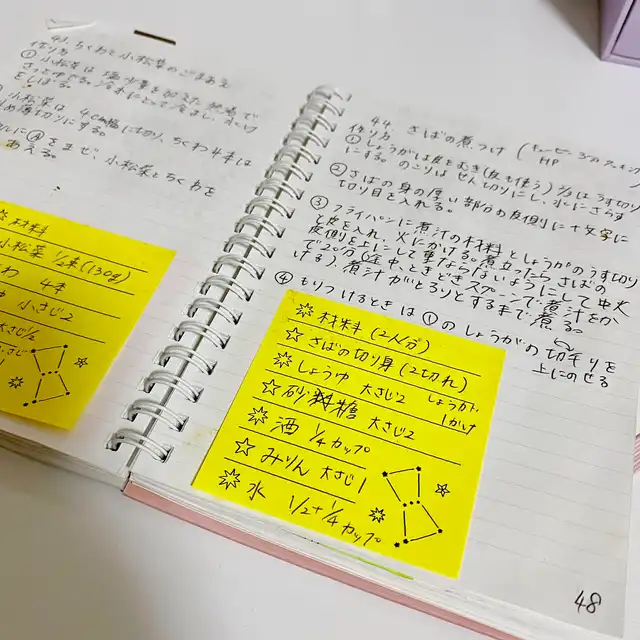 41. ちくわと小松菜のごまあえ
作り方
① 小松菜は塩少々を加えた熱湯で
さっとゆでる。冷水にとって冷まし、水け
をしぼる。
小松菜は4cm幅に切り、ちくわ4本は
薄切りにする。
Ⓐをまぜ、小松菜とちくわを
あえる。
材料
小松菜 1/2束(130g)
4本
小さじ2
大さじ1/2
44. さばの煮つけ (キューピー3分クッキング
HP
作り方
① しょうがは皮をむき(皮も使う)1/2はうす切り
にする。のこりはせん切りにし、水にさらす
② さばの身の厚い部分の皮側に十文字に
切り目を入れる。
③ フライパンに煮汁の材料としょうがのうす切り
と皮を入れ、火にかける。煮立ったら、さばの
皮側を上にして重ならないようにして中火
で20分(途中、ときどきスプーンで煮汁をか
ける)、煮汁がとろりとするまで煮る。
④ もりつけるときは①のしょうがの切千りを
上にのせる
材料 (2人分)
さばの切り身 (2切れ)
しょうゆ 大さじ2 しょうが
1かけ
砂糖 大さじ2
酒 1/4カップ
みりん 大さじ1
水 1/2+1/4カップ
48